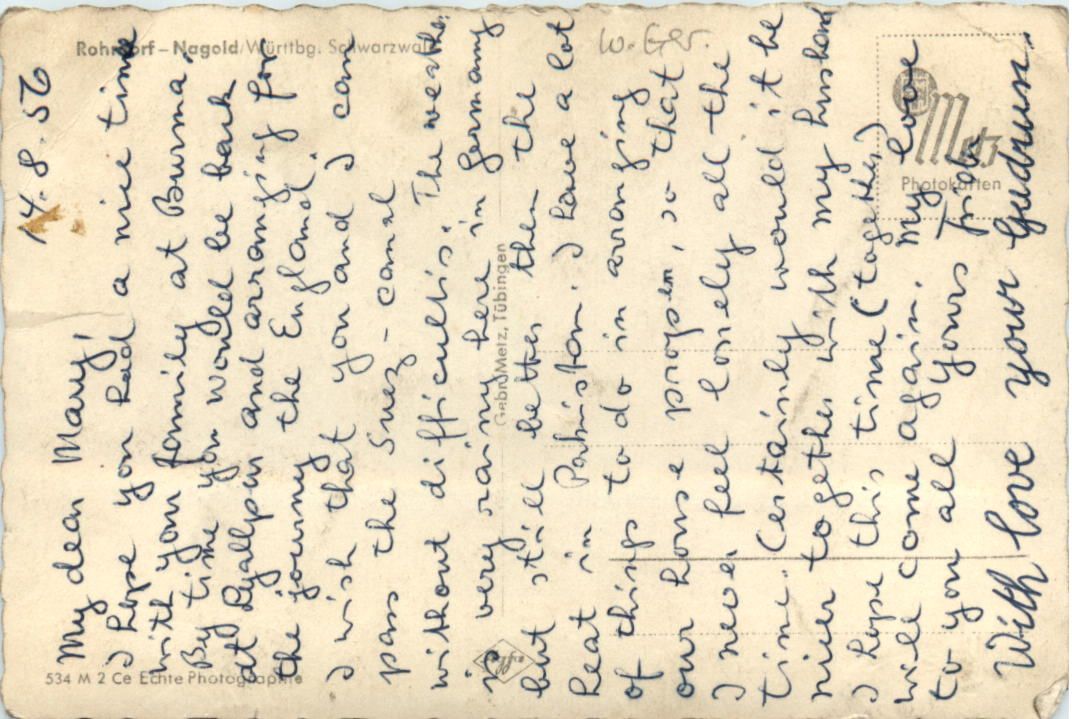 Rohrdorf – Nagold/Württbg. Schwarzwald
W. Ger.
14.8.56
My dear Mary!
I hope you had a nice time
with your family at Burma.
By time you would be back
at Lyallpur and arranging for
the journy the England.
I wish that you and I can
pass the Suez-canal
without difficultis. The weather
is very rainy here in germany
but still better then the
heat in Pakistan. I have a lot
of things to do in arranging
our house propper, so that
I never feel lonely all the
time. Certainly would it be
nicer together with my husband
I hope this time (together)
will come again. My love
to you all Yours Frieda
With love your Gudrun.
Metz
Photokarten
Gebr. Metz, Tübingen
Agfa
534 M 2 Ce Echte Photographie